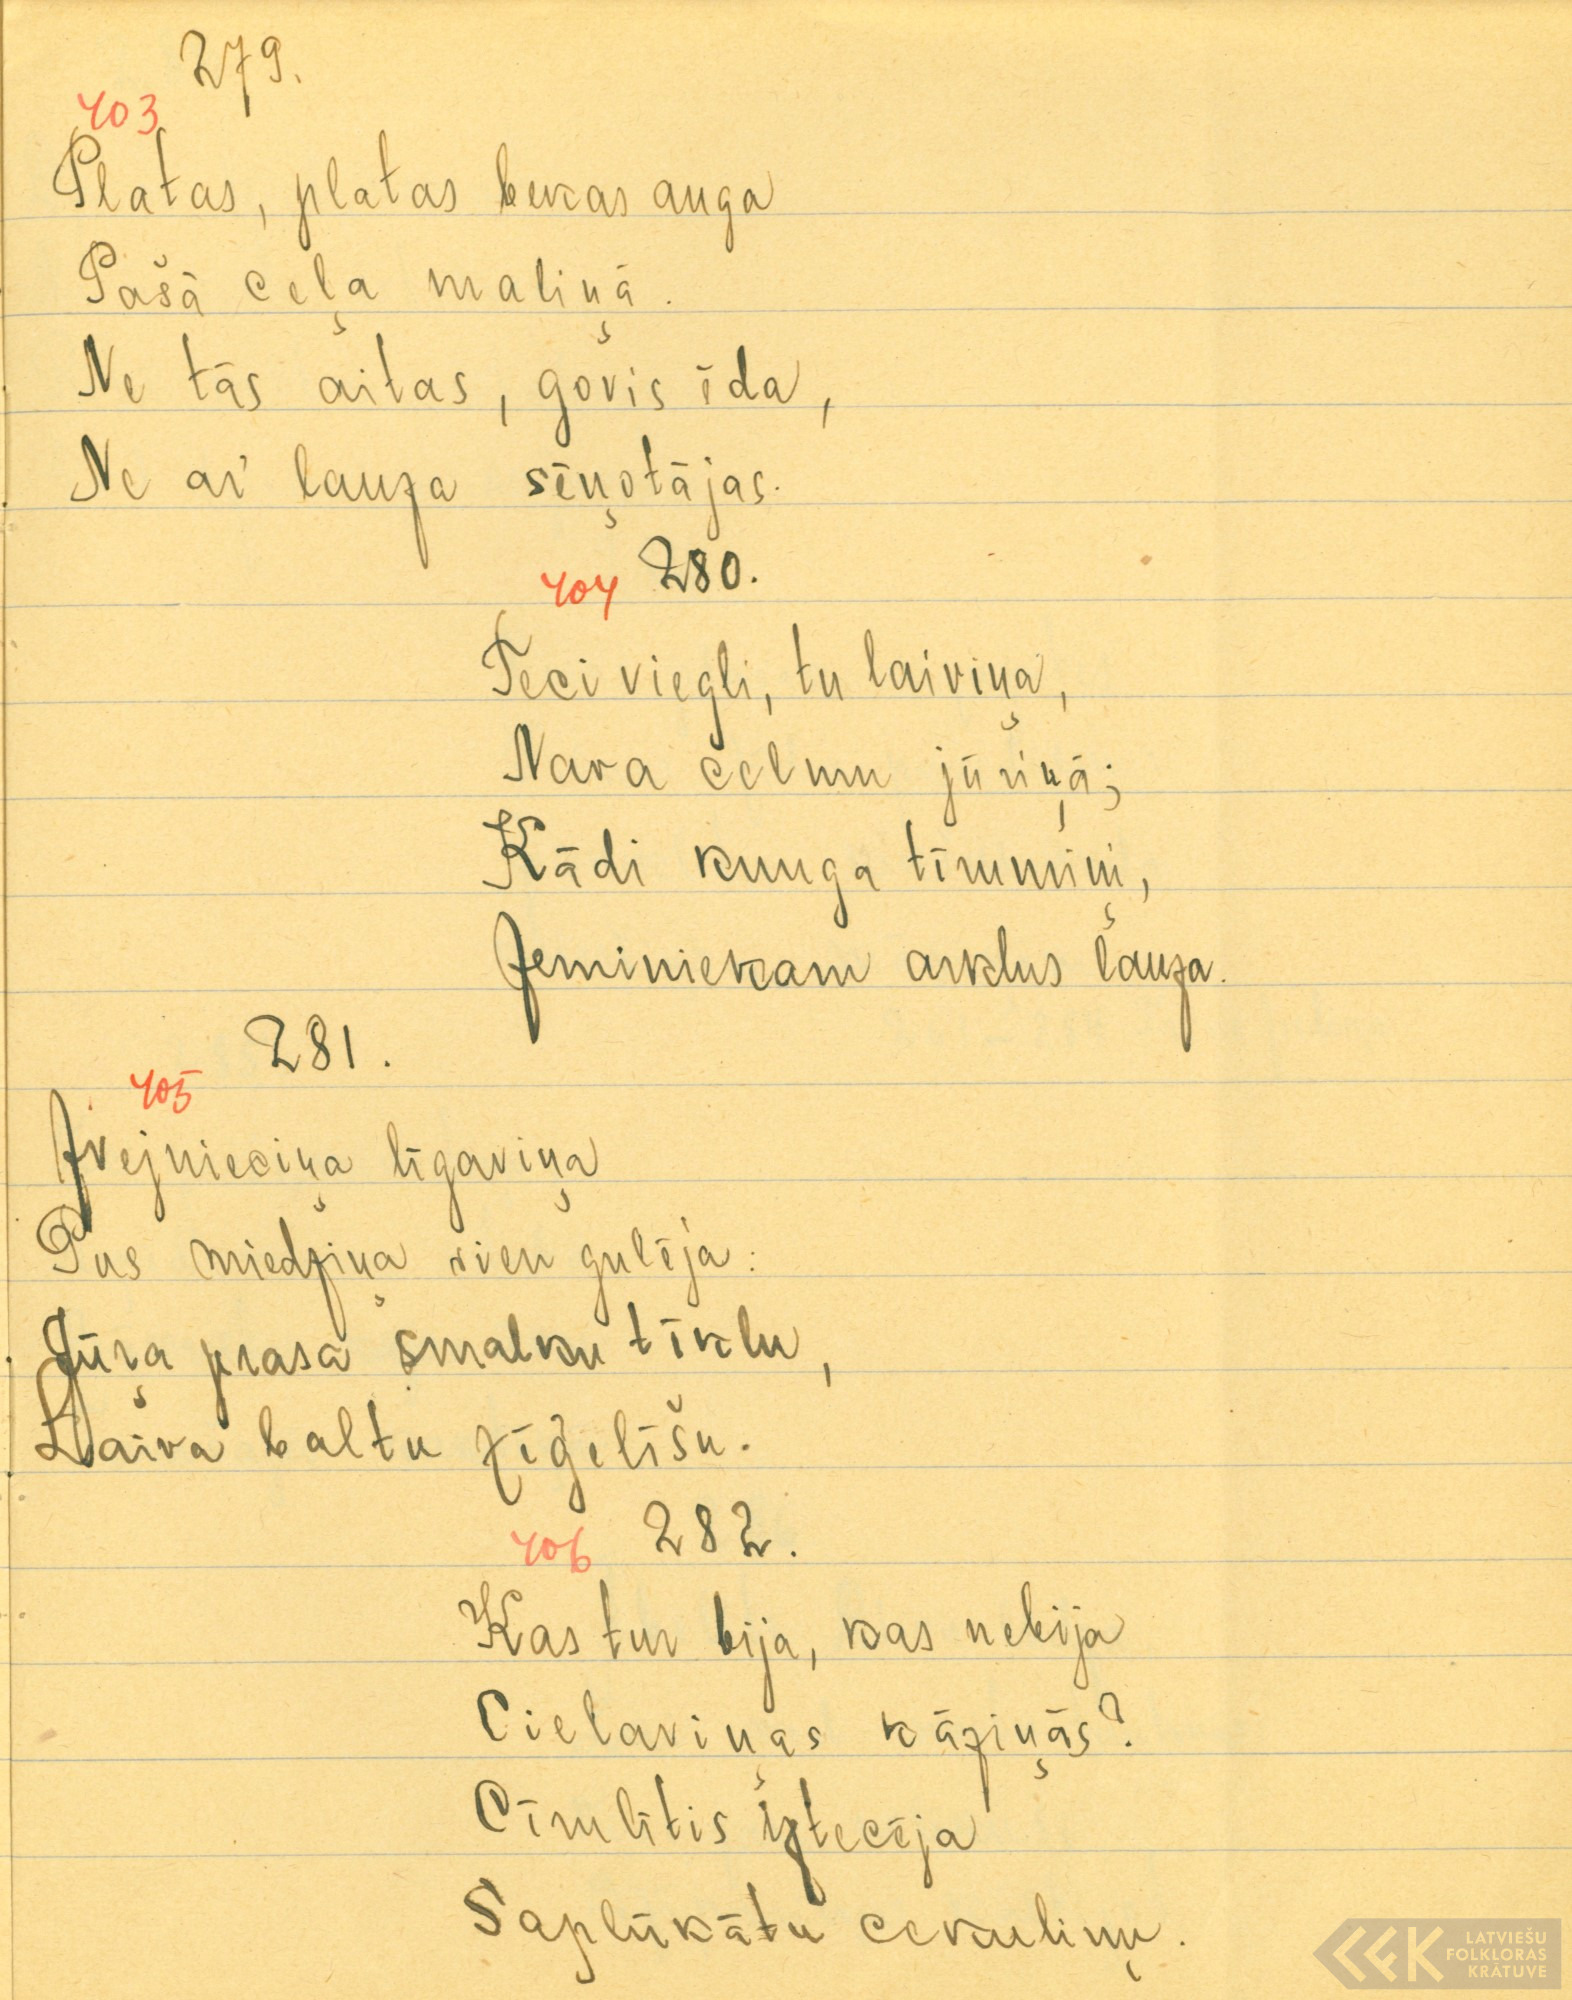 279.
403
Platas, platas bekas auga
Pašā ceļa maliņā.
Ne tās aitas, govis ēda,
Ne ar' lauza sēņotājas.
280.
404
Teci viegli, tu laiviņa,
Nava celmu jūriņā;
Kādi kunga tīrumiņi,
Zeminiekam arklus lauza.
281.
405
Zvejnieciņa līgaviņa
Pus miedziņa vien gulēja:
Jūŗa prasa smalku tīklu,
Laiva baltu zēģelīšu.
282.
406
Kas tur bija, kas nebija
Cielaviņas kāziņās?
Cīrulītis iztecēja
Saplūkātu cekuliņu.
LATVIEŠU
FOLKLORAS
KRĀTUVE